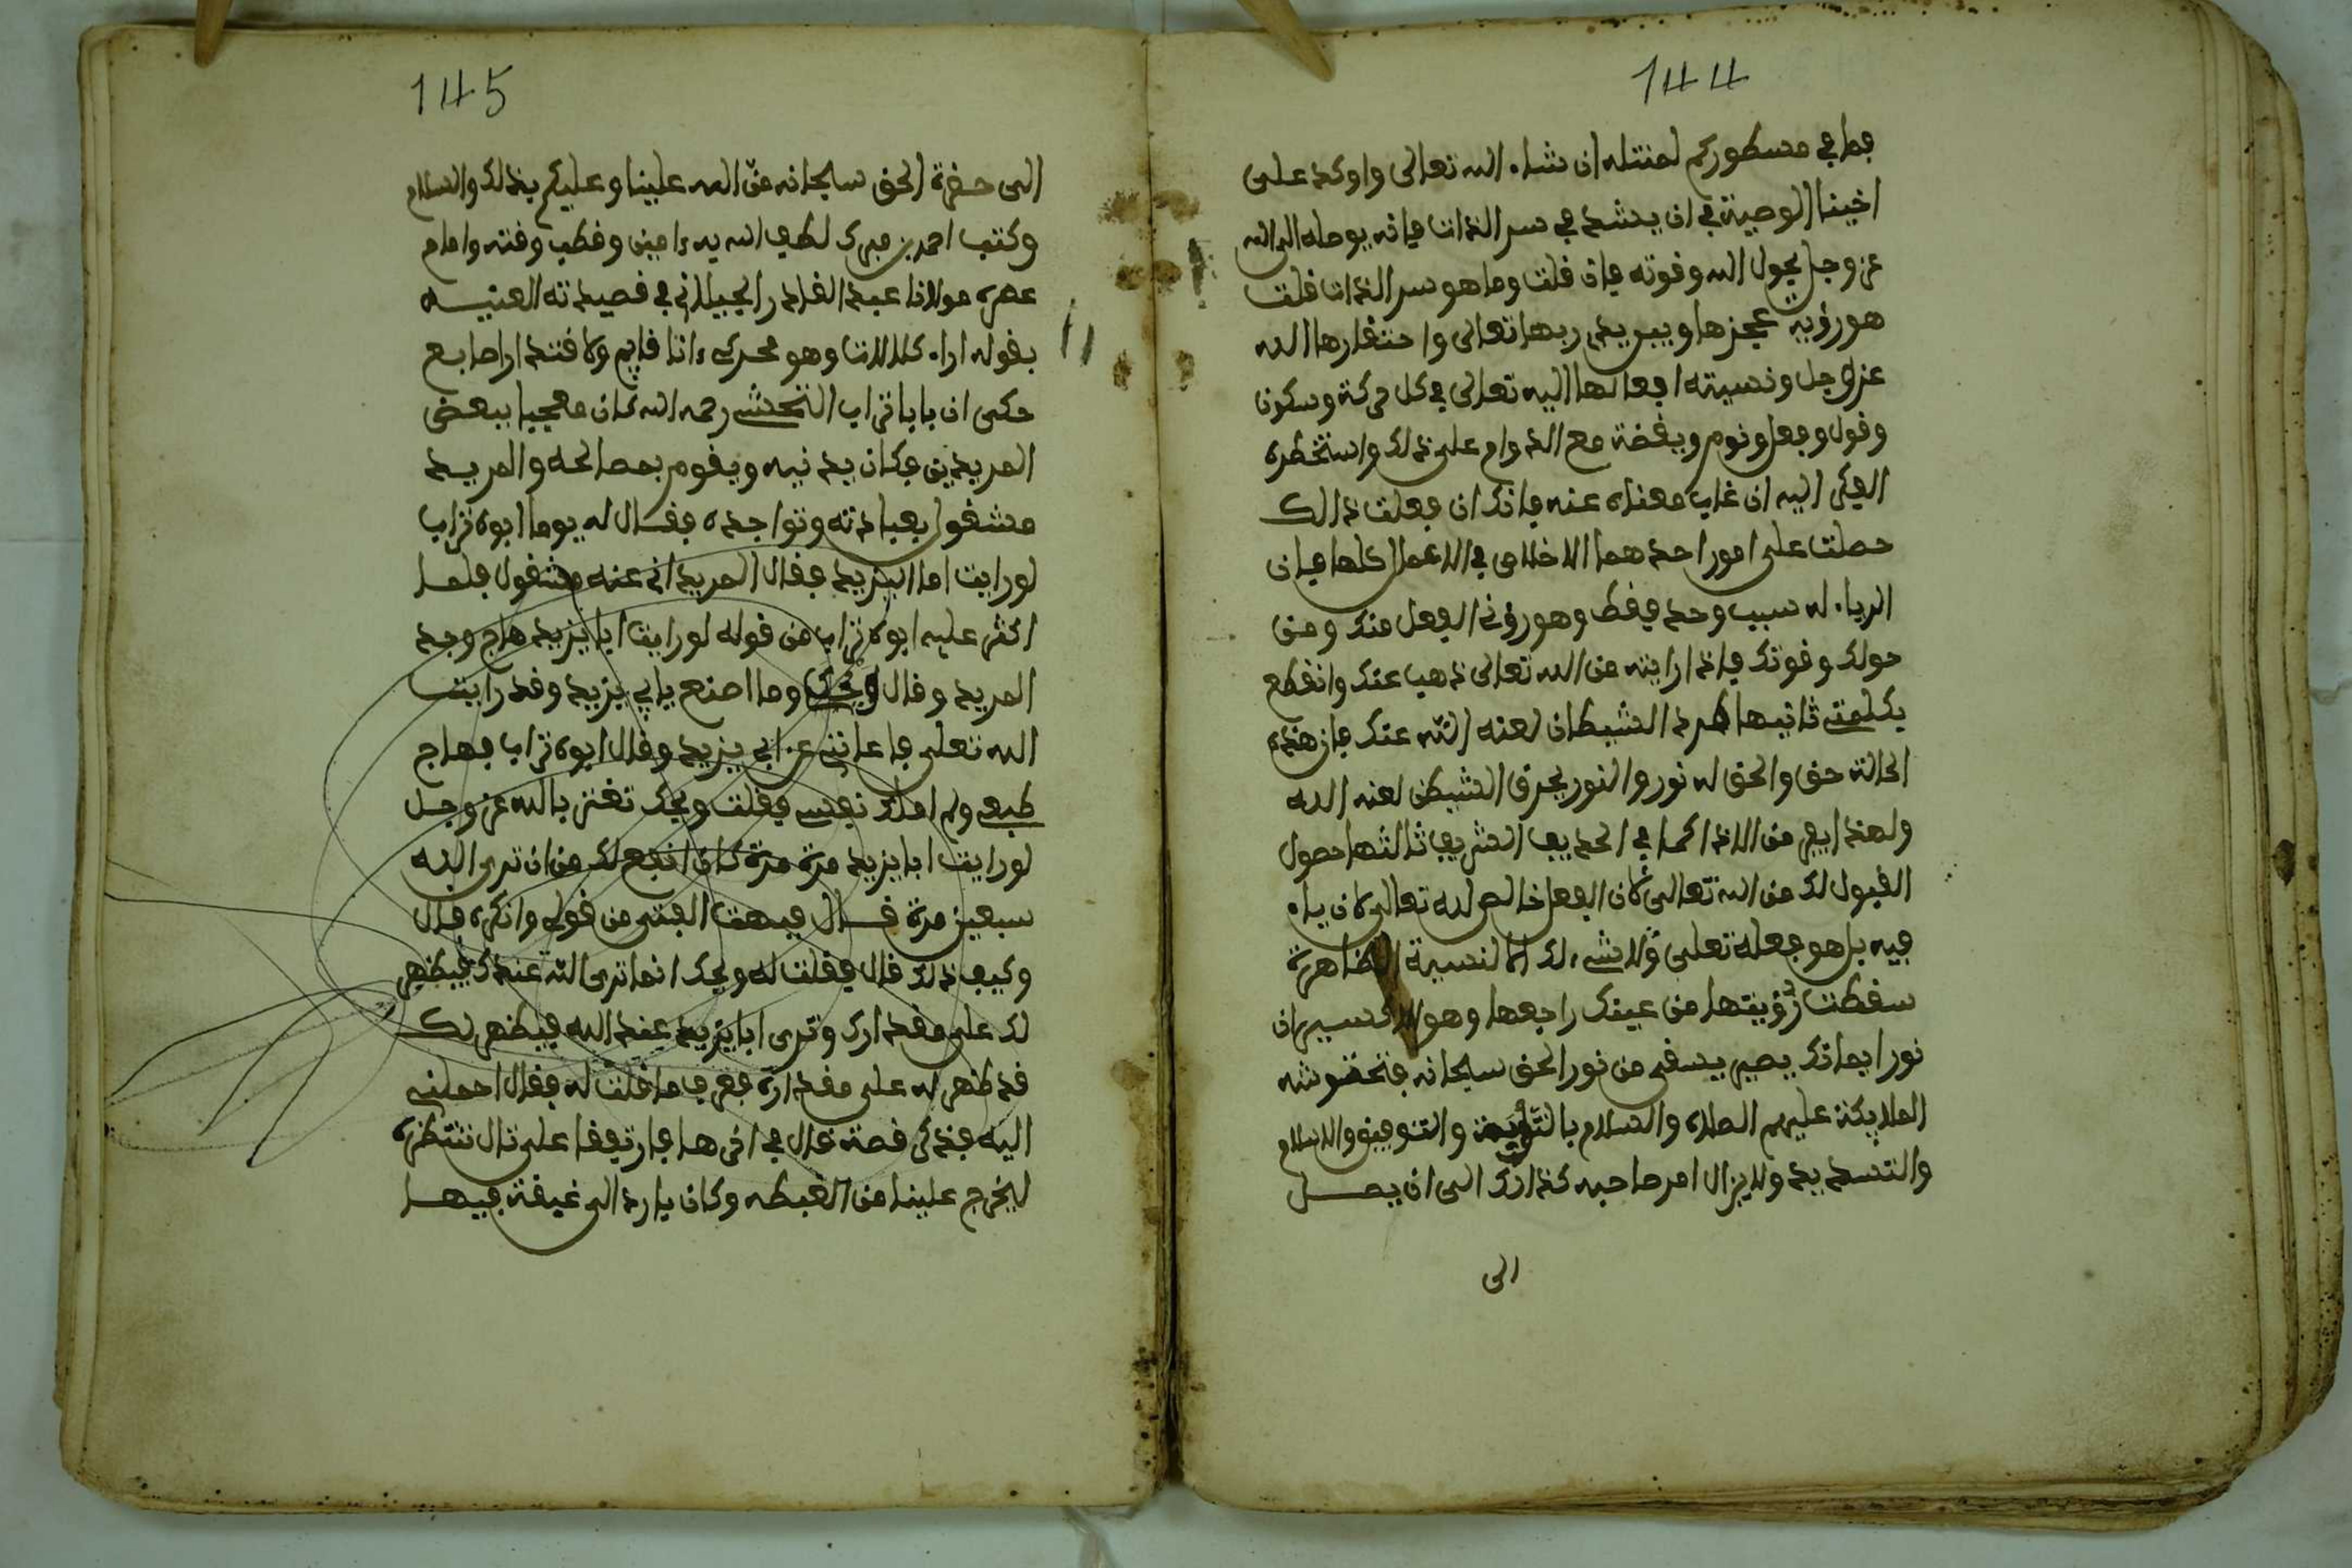 144
فما في مسطوركم لمنتله ان شاء الله تعالى واوكد على
اخينا الوصية في ان يدشد في سر الذات فانه يوصله الى الله
عز وجل بحول الله وقوته فان قلت وما هو سر الذات قلت
هو رؤية عجزها ويبريد ربها تعالى واحتقارها لله
عز وجل ونسبته افعالها اليه تعالى في كل حركة وسكون
وقول وفعل ونوم ويقضة مع الدوام على ذلك واستخطره
الفكر اليه ان غاب معناه عنه فانك ان فعلت ذالك
حصلت على امور احدهما الاخلاص في الاعمال كلها فان
الرياء له سبب وحد فقط وهو رؤية الفعل منك ومن
حولك وقوتك فاذا رايته من الله تعالى ذهب عنك وانقطع
بكلمته ثانيها طرد الشيطان لعنه الله عنك فان هذه
الحالة حق والحق له نور والنور يحرق الشيطن لعنه الله
ولهذا يفر من الاذا كما في الحديث الشريف ثالثها حصول
القبول لك من الله تعالى كان الفعل خالص لله تعالى كان ياء
فيه بل هو فعله تعلى ولا شيء لك الا لنسبة الظاهرة
سقطت رؤيتها من عينك راجعها وهو الاكسير ان
نور ايمانك يصير يسقى من نور الحق سبحانه فتخضوشه
الملايكة عليهم الصلاة والسلام بالتأييد والتوفيق والاسلام
والتسديد ولا يزال امر صاحبه كذالك الى ان يصل
الى
145
الى حضرة الحق سبحانه من الله علينا وعليكم بذلك والسلام
وكتب احمد بن مبرك لطف الله به ءامين وقطب وقته وامام
عصره مولانا عبد القادر الجيلاني في قصيدته العينيه
بقوله اراه كالالات وهو محركي ءانا قايم وكا قتدارا صابع
حكى ان بابا تراب النخشي رحمه الله كان معجبا ببعض
المريدين فكان يدنيه ويقوم بمصالحه والمريد
مشغول بعبادته وتواجده فقال له يوما ابوه تراب
لو رايت اما اليزيد فقال المريد اني عنه مشغول فلما
اكثر عليه ابوه تراب من قوله لو رايت ابا يزيد هاج وجد
المريد وقال ويحك وما اصنع بابي يزيد وقد رايت
الله تعلى فاغانني عن ابي يزيد وقال ابوه تراب فهاج
طبعي ولم املك نفسي فقلت ويحك تغتر بالله عز وجل
لو رايت ابا يزيد مرة مرة كان انفع لك من ان ترى الله
سبعين مرة قال فبهت الفتى من قوله وانكره قال
وكيف ذلك قال فقلت له ويحك انما ترى الله عندك فيظهر
لك على مقدارك وترى ابا يزيد عند الله فيظهر لك
قد ظهر له على مقداره فعرف ما قلت له فقال احملني
اليه فذكر قصة قال في اخرها فارتقفا على تال ننتظره
ليخرج علينا من الغيطه وكان يارد الى غيفة فيها